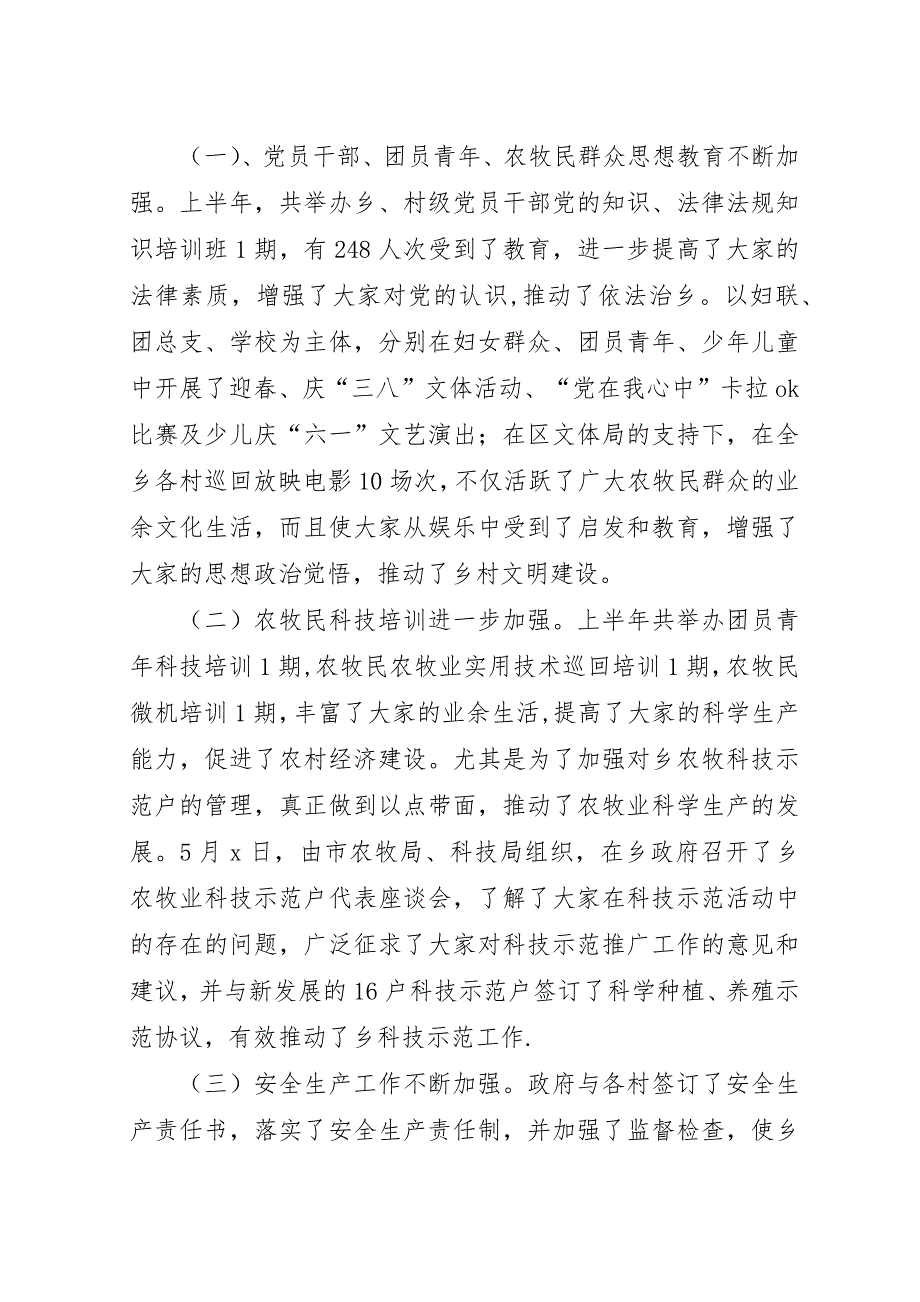 （一）、党员干部、团员青年、农牧民群众思想教育不断加
强。上半年，共举办乡、村级党员干部党的知识、法律法规知
识培训班 1 期，有 248 人次受到了教育，进一步提高了大家的
法律素质，增强了大家对党的认识,推动了依法治乡。以妇联、
团总支、学校为主体，分别在妇女群众、团员青年、少年儿童
中开展了迎春、庆“三八”文体活动、“党在我心中”卡拉 ok
比赛及少儿庆“六一”文艺演出；在区文体局的支持下，在全
乡各村巡回放映电影 10 场次，不仅活跃了广大农牧民群众的业
余文化生活，而且使大家从娱乐中受到了启发和教育，增强了
大家的思想政治觉悟，推动了乡村文明建设。
（二）农牧民科技培训进一步加强。上半年共举办团员青
年科技培训 1 期,农牧民农牧业实用技术巡回培训 1 期，农牧民
微机培训 1 期，丰富了大家的业余生活,提高了大家的科学生产
能力，促进了农村经济建设。尤其是为了加强对乡农牧科技示
范户的管理，真正做到以点带面，推动了农牧业科学生产的发
展。5 月 x 日，由市农牧局、科技局组织，在乡政府召开了乡
农牧业科技示范户代表座谈会，了解了大家在科技示范活动中
的存在的问题，广泛征求了大家对科技示范推广工作的意见和
建议，并与新发展的 16 户科技示范户签订了科学种植、养殖示
范协议，有效推动了乡科技示范工作.
（三）安全生产工作不断加强。政府与各村签订了安全生
产责任书，落实了安全生产责任制，并加强了监督检查，使乡